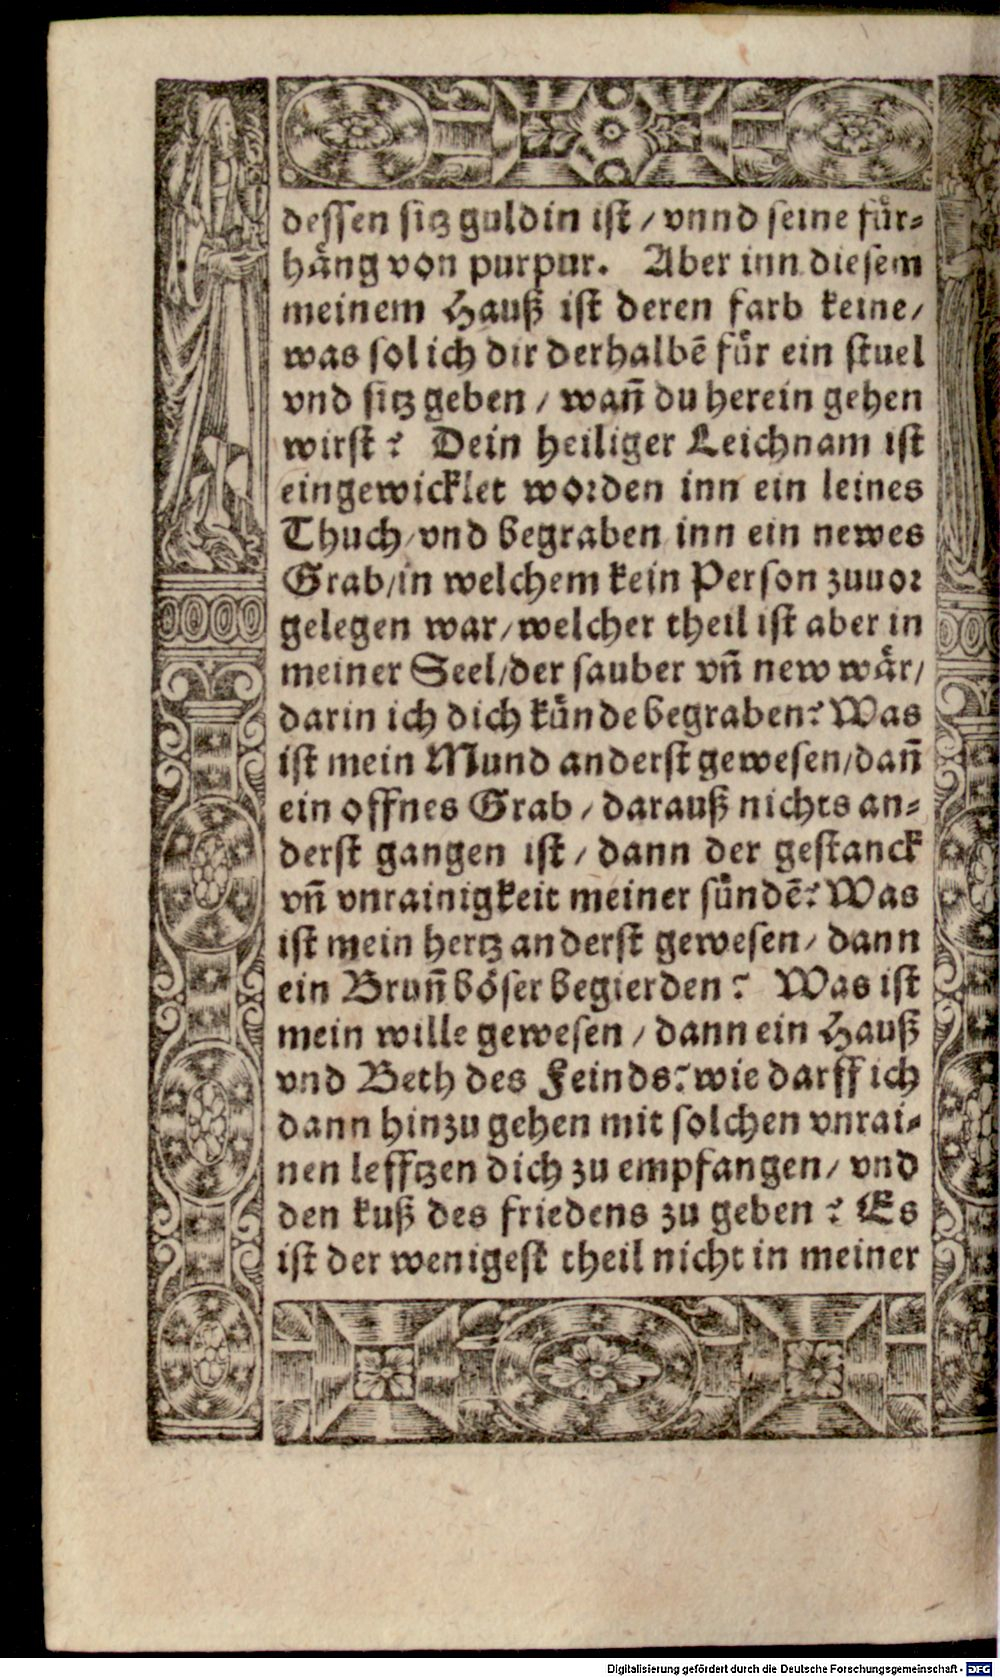 dessen sitz guldin ist / vnnd seine fuͤr⸗
haͤng von purpur. Aber inn diesem
meinem Hauß ist deren farb keine/
was sol ich dir derhalbē fuͤr ein stuel
vnd sitz geben / wañ du herein gehen
wirst? Dein heiliger Leichnam ist
eingewicklet worden inn ein leines
Thuch/vnd begraben inn ein newes
Grab/in welchem kein Person zuuor
gelegen war/welcher theil ist aber in
meiner Seel/der sauber vñ new waͤr/
darin ich dich kuͤnde begraben? Was
ist mein Mund anderst gewesen/dañ
ein offnes Grab / darauß nichts an⸗
derst gangen ist / dann der gestanck
vñ vnrainigkeit meiner suͤndē? Was
ist mein hertz anderst gewesen/ dann
ein Brunñ boͤser begierden? Was ist
mein wille gewesen / dann ein Hauß
vnd Beth des Feinds? wie darff ich
dann hinzu gehen mit solchen vnrai⸗
nen lefftzen dich zu empfangen/ vnd
den kuß des friedens zu geben? Es
ist der wenigest theil nicht in meiner
Digitalisierung gefördert durch die Deutsche Forschungsgemeinschaft - DFG